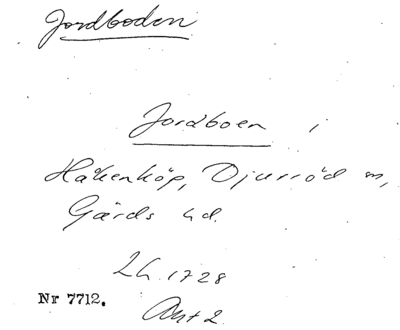 Jordboden
Jordboen i
Håkenköp, Djurröd m,
Gärds hd.
Lh. 1728
Nr 7712.
Akt 2